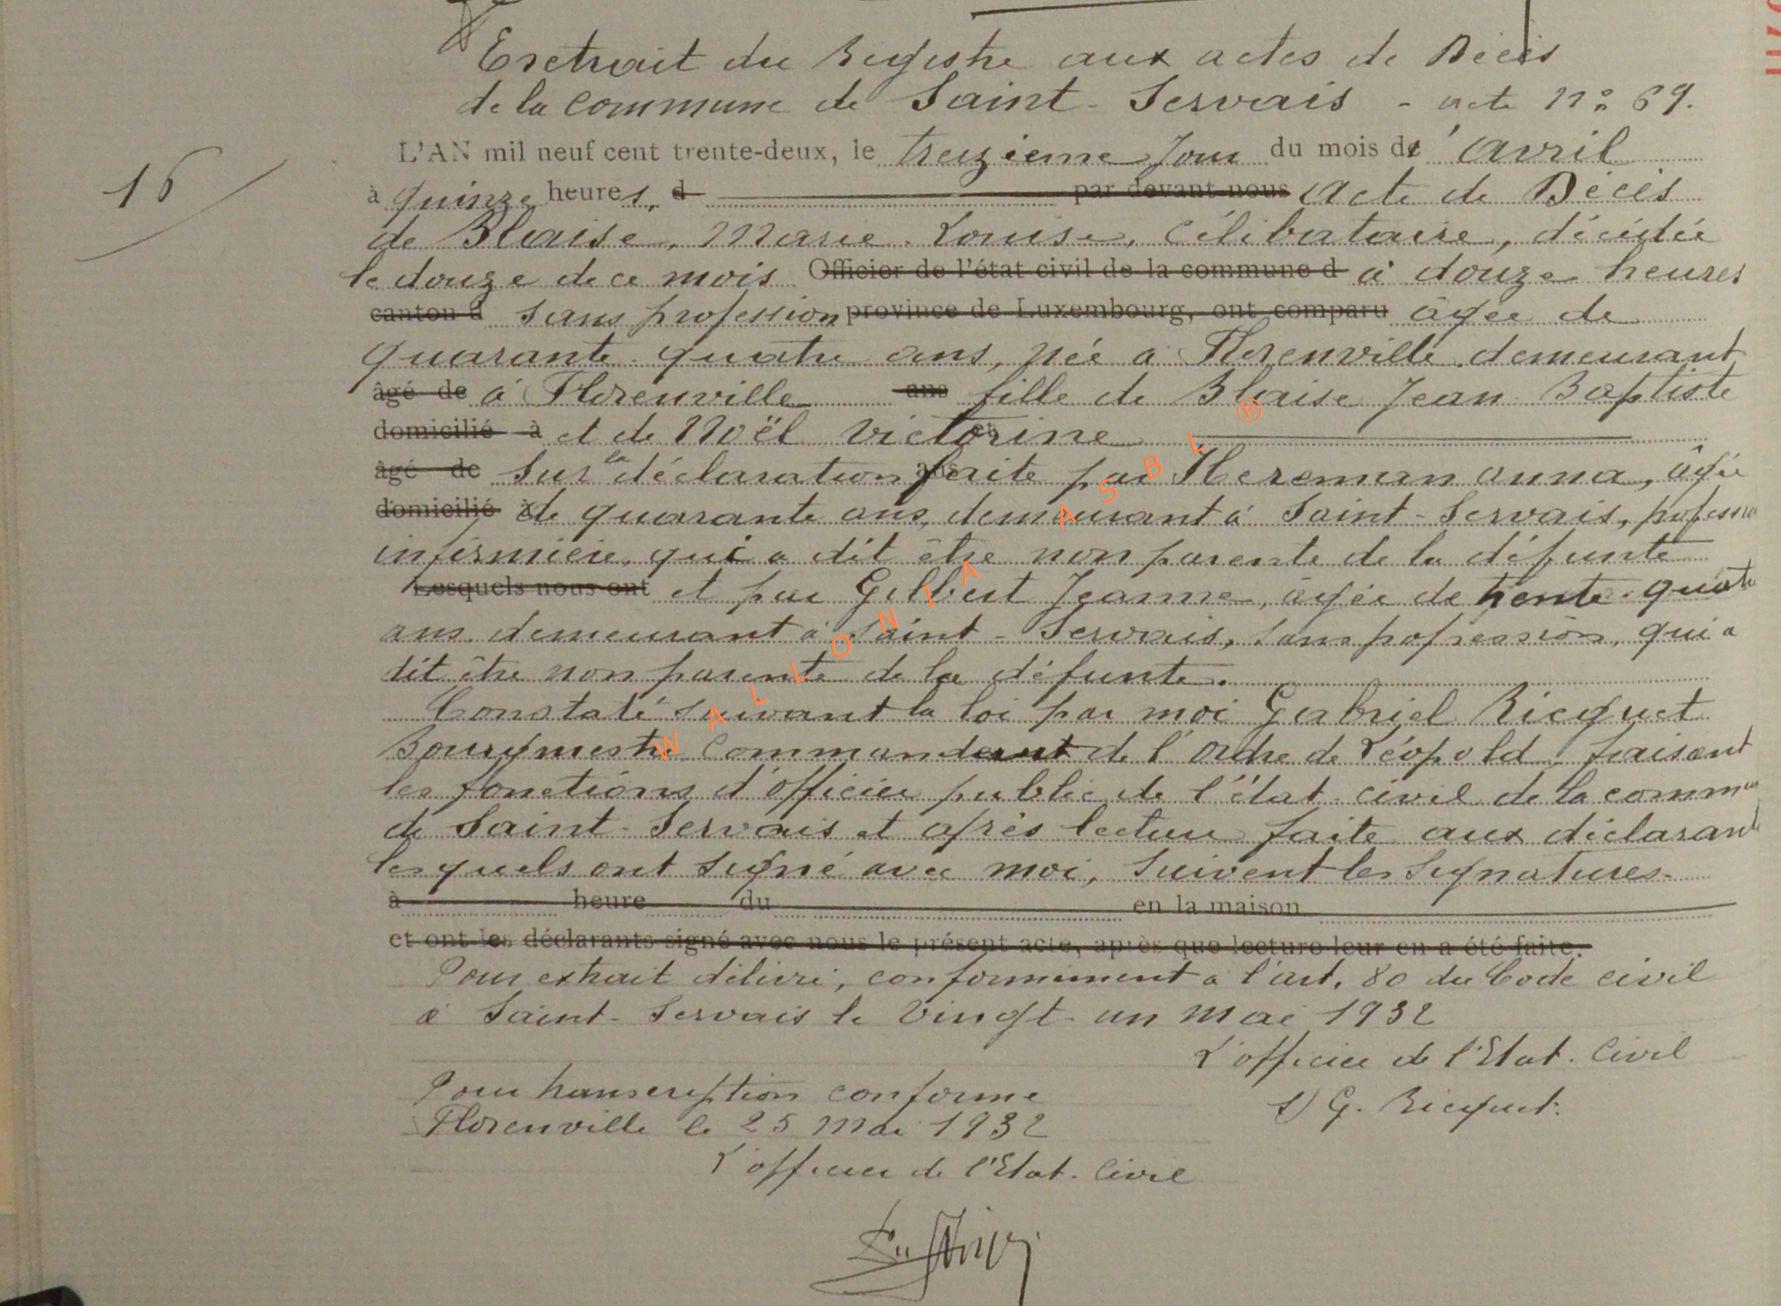 Extrait du Registre aux actes de Décès
de la Commune de Saint-Servais - acte n° 69.
16
L'AN mil neuf cent trente-deux, le treizième jour du mois d'avril
à quinze heures, d par devant nous Acte de Décès
de Blaise, Marie Louise, célibataire, décédée
le douze de ce mois Officier de l'état civil de la commune d à douze heures
canton d sans profession province de Luxembourg, ont comparu âgée de
quarante quatre ans, née à Florenville demeurant
âgé de à Florenville ans fille de Blaise Jean Baptiste
domicilié à et de Noël Victorine
âgé de Sur la déclaration faite par Hereman Anna, âgée
domicilié à de quarante ans, demeurant à Saint-Servais, profession
infirmière, qui a dit être non parente de la défunte
Lesquels nous ont et par Gilbert Jeanne, âgée de trente-quatre
ans demeurant à Saint-Servais, sans profession, qui a
dit être non parente de la défunte.
Constaté suivant la loi par moi Gabriel Ricquet
Bourgmestre Commandeur de l'ordre de Léopold, faisant
les fonctions d'officier public de l'état civil de la commune
de Saint-Servais et après lecture faite aux déclarants
lesquels ont signé avec moi, suivent les signatures.
à heure du en la maison
et ont les déclarants signé avec nous le présent acte, après que lecture leur en a été faite.
Pour extrait délivré, conformément à l'art. 80 du Code civil
à Saint-Servais le vingt-un mai 1932
L'officier de l'Etat-Civil
s) G. Ricquet.
Pour transcription conforme
Florenville le 25 mai 1932
L'officier de l'Etat-Civil
WALLONIA ASBL ®